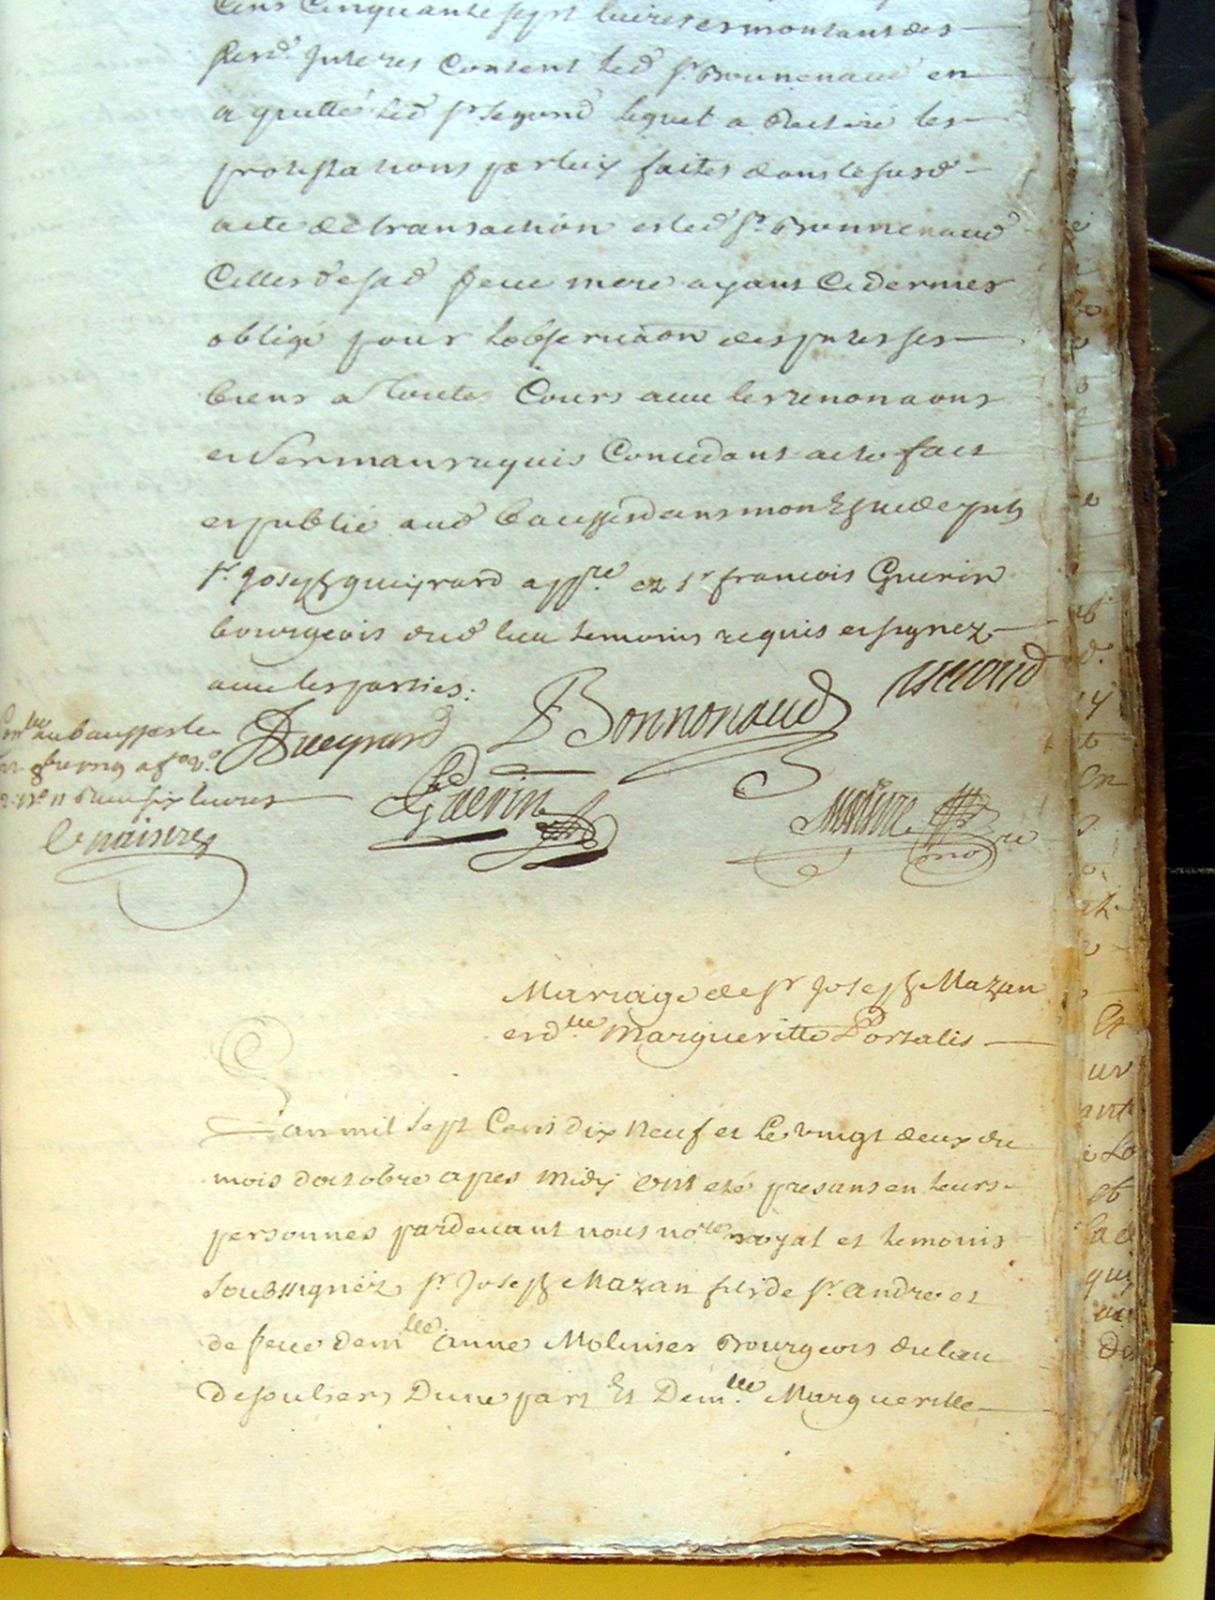 Cens Cinquante sept livres et montant des
susd. Interes Content led sr Bonnenaud en
a quitté led sr Segond lequel a Rettiré les
protestations par luy faites dans le susd
acte de transaction et led sr Bonnenaud
Celles de sad feue mere ayant Ce dernier
obligé pour lobservaon des pntes ses
biens a toutes Cours avec les renonaons
et sermans requis Concedant acte fait
et publié aud Bausset dans mon Estude pnts
sr Joseph gueyrard appre et sr francois Guerin
bourgeois dud lieu temoins requis et signez
avec les parties.
Gueyrard
Bonnonaud
Segond
Conlle au bausset le
six livres
Guerin
no re
Mariage de sr Joseph Mazan
et dlle Margueritte Portalis
Lan mil sept Cens dix neuf et le vingt deux du
mois doctobre apres midy ont eté presans en leurs
personnes pardevant nous nore royal et temoins
soubsignéz sr Joseph Mazan fils de sr andre et
de feue demlle anne Molinier Bourgeois du lieu
de souliers Dune part Et Demlle Margueritte